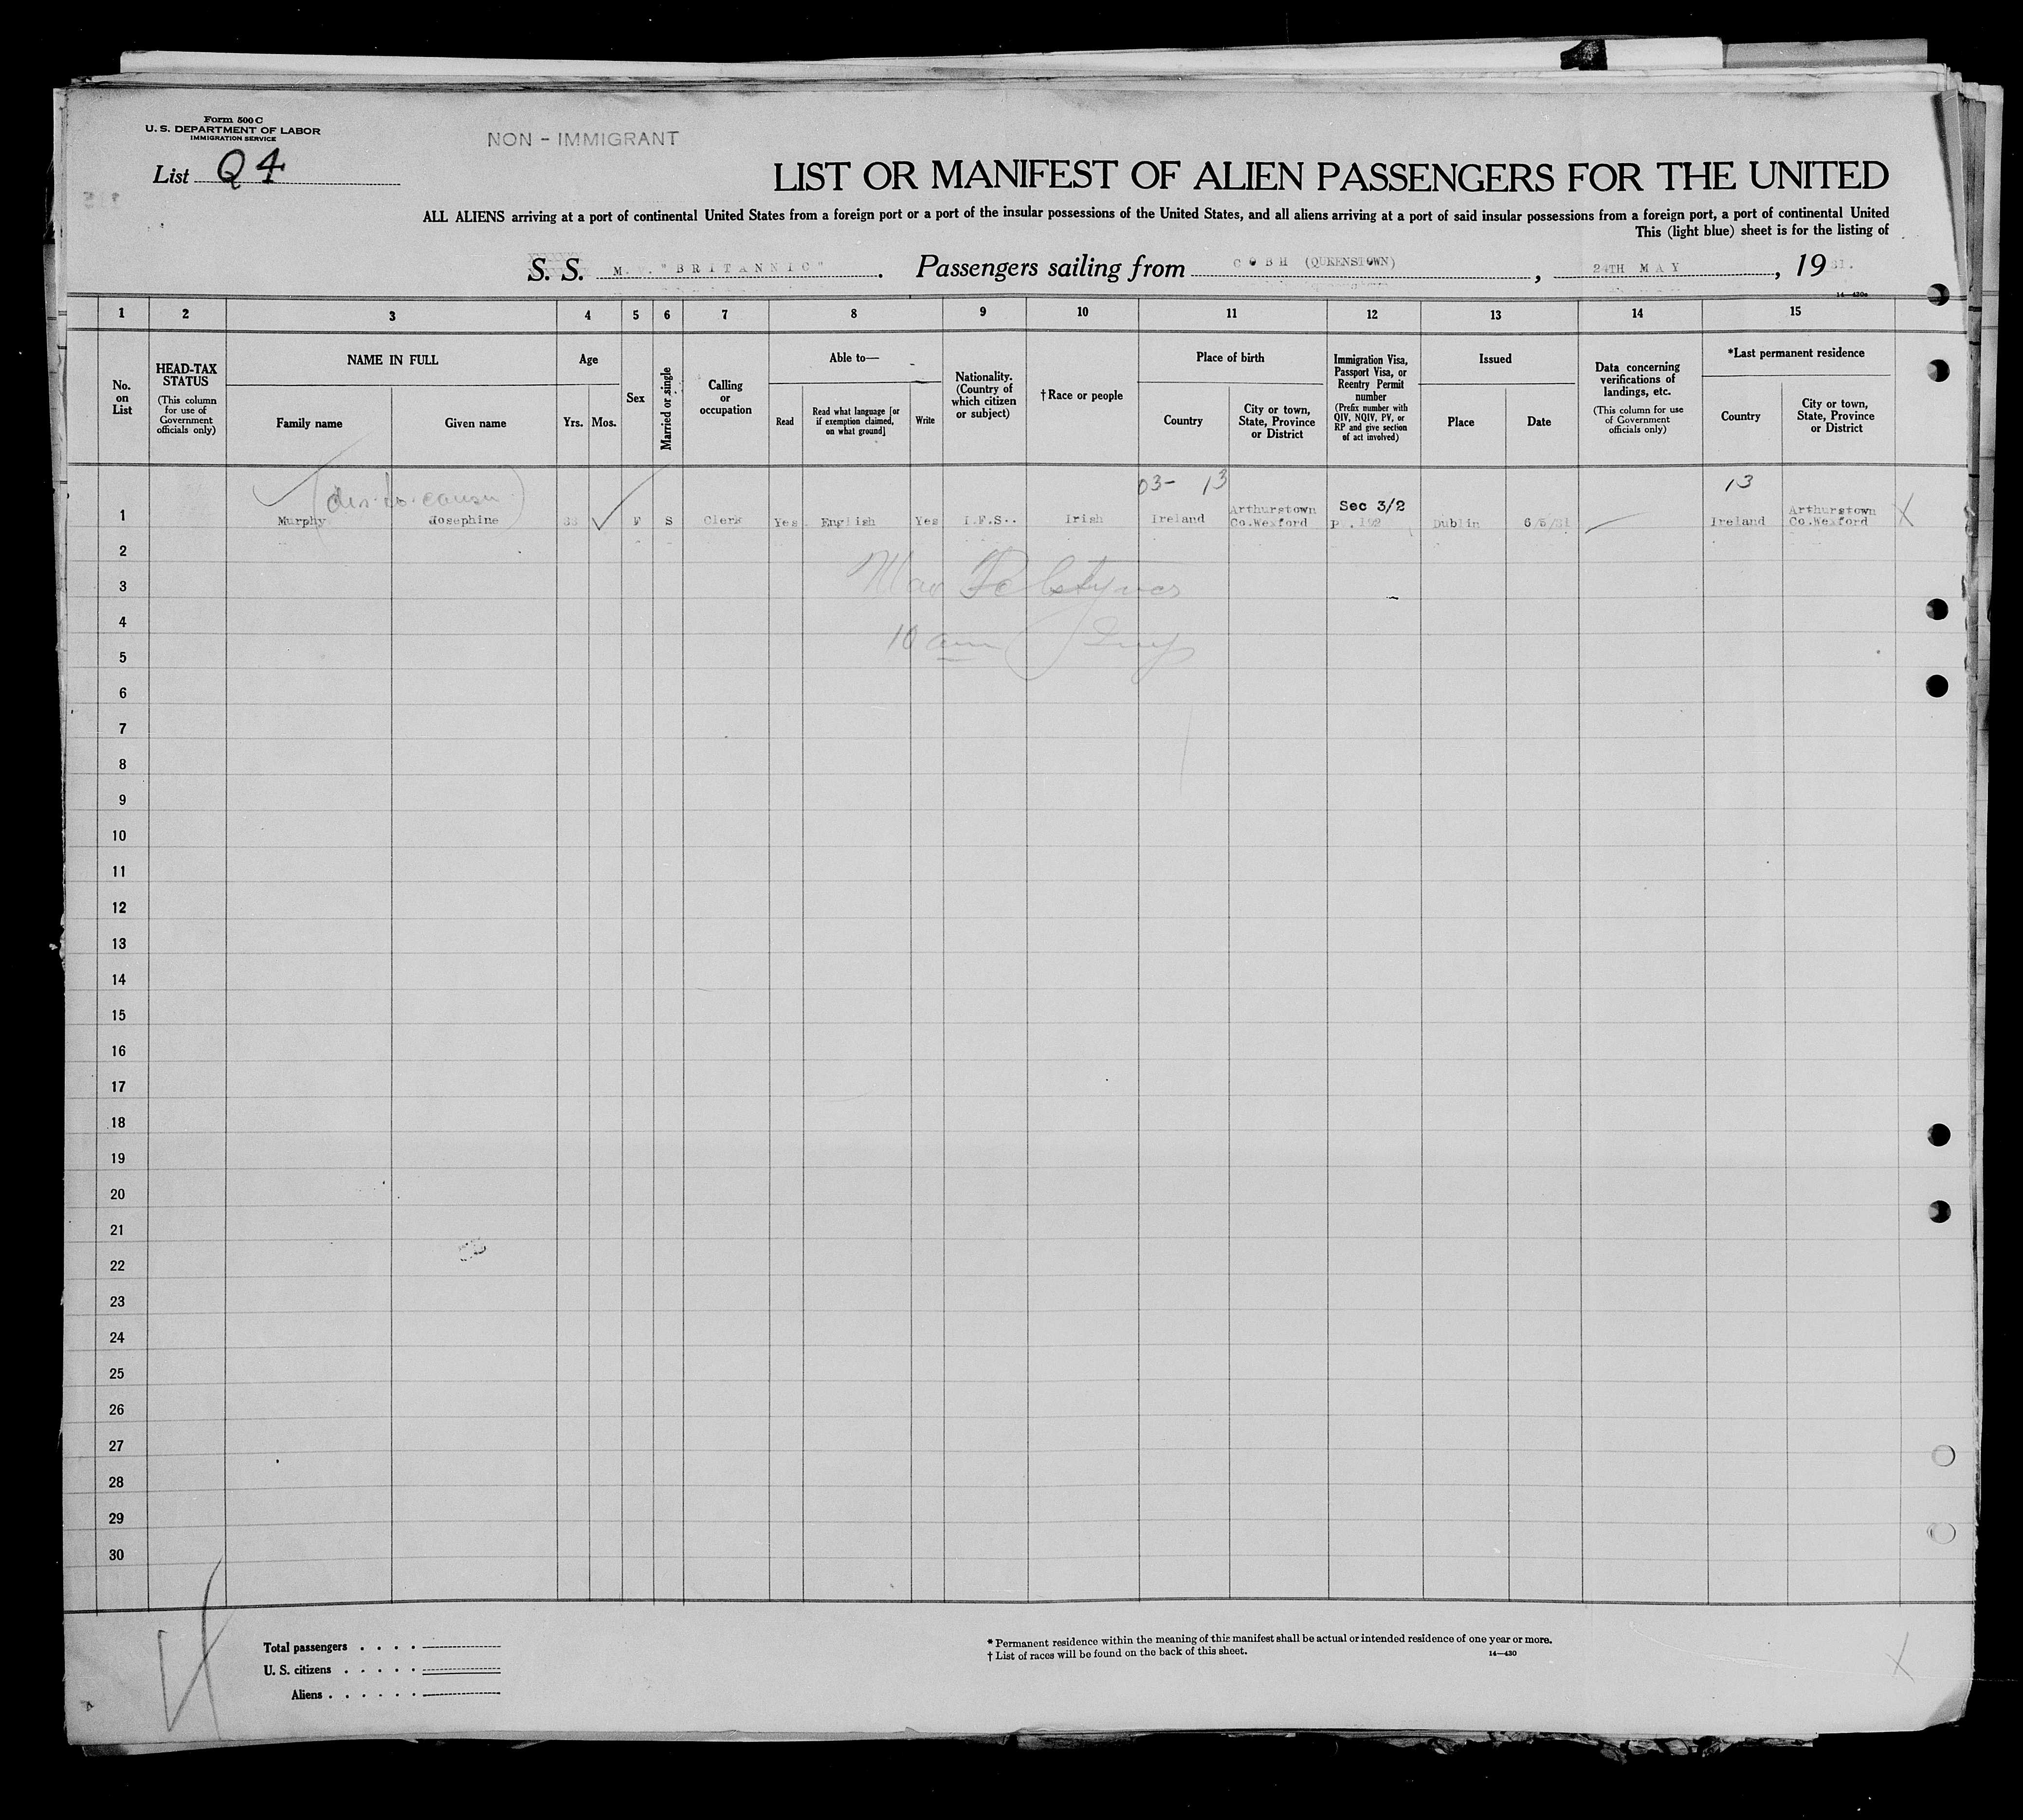 Form 500 C
U. S. DEPARTMENT OF LABOR
IMMIGRATION SERVICE
NON - IMMIGRANT
List Q 4
LIST OR MANIFEST OF ALIEN PASSENGERS FOR THE UNITED
ALL ALIENS arriving at a port of continental United States from a foreign port or a port of the insular possessions of the United States, and all aliens arriving at a port of said insular possessions from a foreign port, a port of continental United
This (light blue) sheet is for the listing of
S. S. M.V. "BRITANNIC". Passengers sailing from COBH (QUEENSTOWN), 24TH MAY, 1931.
14—430a
1 2 3 4 5 6 7 8 9 10 11 12 13 14 15
No. on List
HEAD-TAX STATUS
(This column for use of Government officials only)
NAME IN FULL
Family name
Given name
Age
Yrs. Mos.
Sex
Married or single
Calling or occupation
Able to—
Read
Read what language [or if exemption claimed, on what ground]
Write
Nationality. (Country of which citizen or subject)
†Race or people
Place of birth
Country
City or town, State, Province or District
Immigration Visa, Passport Visa, or Reentry Permit number
(Prefix number with QIV, NQIV, PV, or RP and give section of act involved)
Issued
Place
Date
Data concerning verifications of landings, etc.
(This column for use of Government officials only)
*Last permanent residence
Country
City or town, State, Province or District
03- 13 13
Sec 3/2
1 Murphy Josephine 33 F S Clerk Yes English Yes I.F.S. Irish Ireland Arthurstown Co.Wexford PV.192 Dublin 6/5/31 Ireland Arthurstown Co.Wexford X
2
3
4
10 am
5
6
7
8
9
10
11
12
13
14
15
16
17
18
19
20
21
22
23
24
25
26
27
28
29
30
Total passengers
U. S. citizens
Aliens
* Permanent residence within the meaning of this manifest shall be actual or intended residence of one year or more.
† List of races will be found on the back of this sheet.
14—430
X